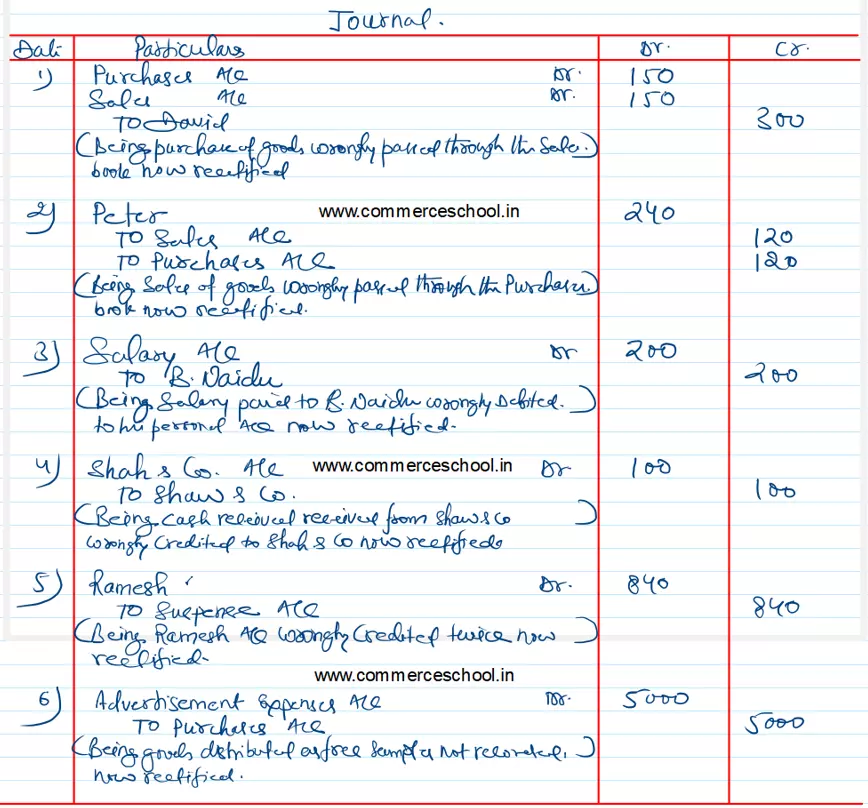 Journal.
Date Particulars Dr. Cr.
1) Purchases A/c Dr. 150
Sales A/c Dr. 150
TO David 300
(Being purchase of goods wrongly passed through the Sales.)
book now rectified
2) Peter www.commerceschool.in 240
TO Sales A/c 120
TO Purchases A/c 120
(Being Sales of goods wrongly passed through the Purchases.)
book now rectified.
3) Salary A/c Dr 200
TO B. Naidu 200
(Being Salary paid to B. Naidu wrongly Debited.)
to his personal A/c now rectified.
4) Shah & Co. A/c www.commerceschool.in Dr 100
TO Shaw & Co. 100
(Being Cash received received from Shaw & Co)
wrongly Credited to Shah & Co now rectified
5) Ramesh Dr. 840
TO Suspense A/c 840
(Being Ramesh A/c wrongly Credited twice now)
rectified.
www.commerceschool.in
6) Advertisement Expenses A/c Dr. 5000
TO Purchases A/c 5000
(Being goods distributed as free Samples not recorded,)
now rectified.